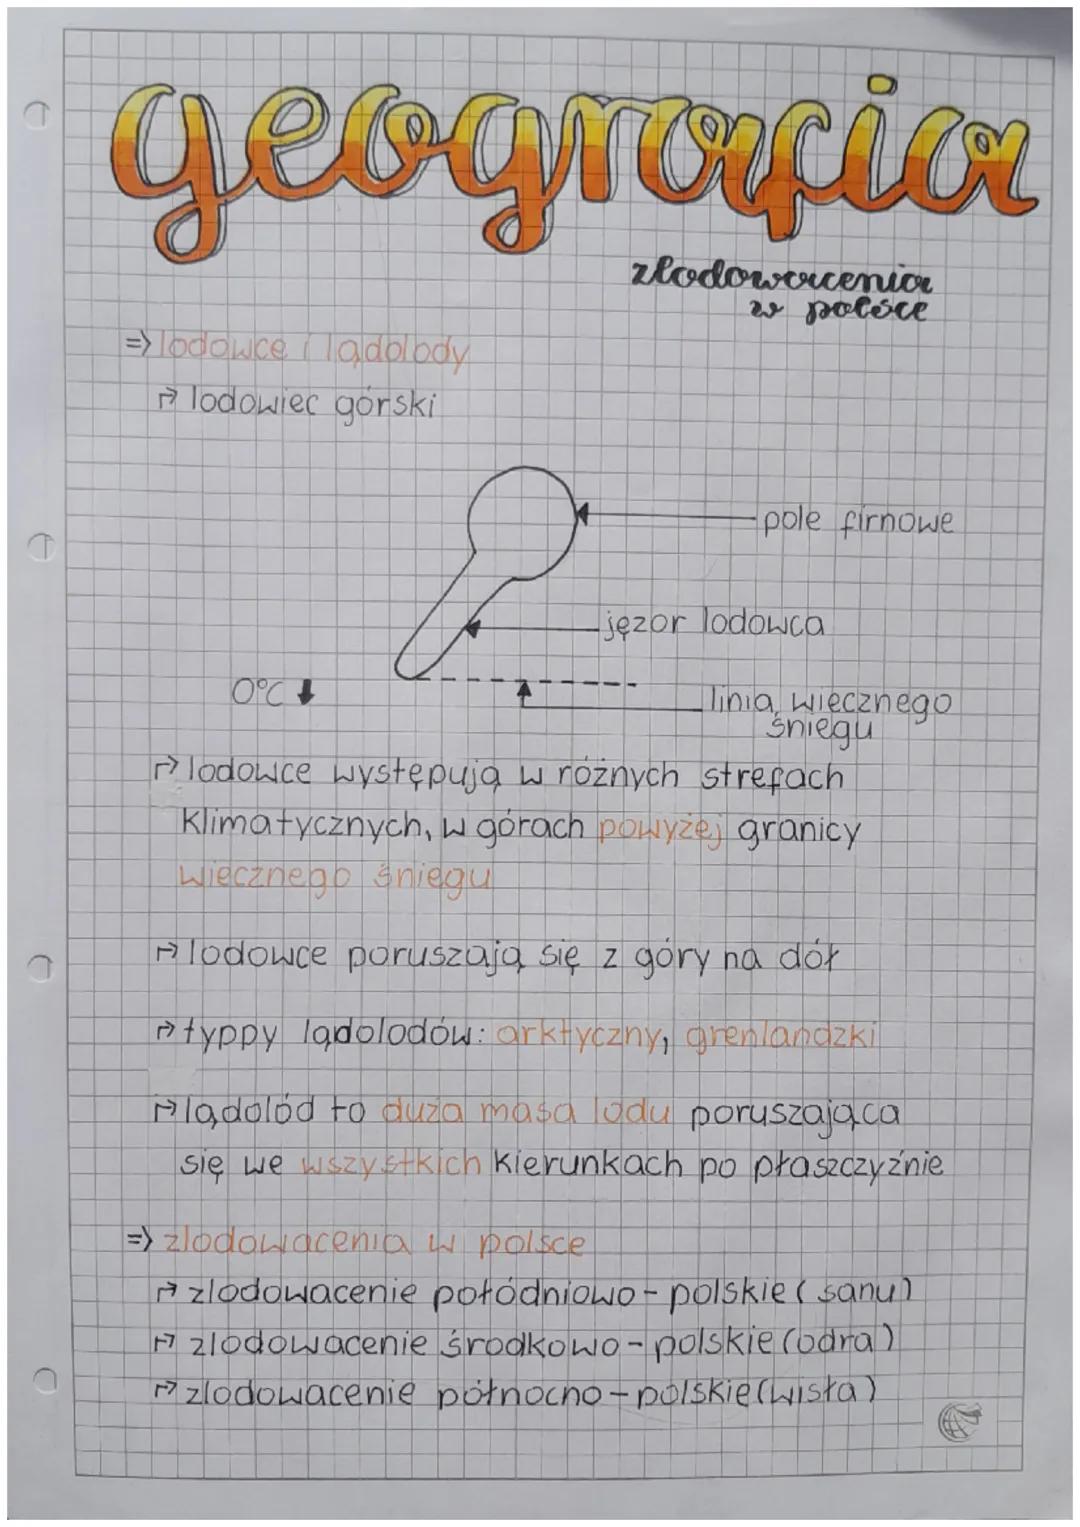 geografia
zlodowacenia
w polsce
=> lodowce i lądolody
↱ lodowiec górski
pole firnowe
jęzor lodowca
0°C ⬇
linia wiecznego
śniegu
↱ lodowce występują w różnych strefach
klimatycznych, w górach powyżej granicy
wiecznego śniegu
↱ lodowce poruszają się z góry na dół
↱ typpy lądolodów: arktyczny, grenlandzki
↱ lądolód to duża masa lodu poruszająca
się we wszystkich kierunkach po płaszczyźnie
=> zlodowacenia w polsce
↱ zlodowacenie połódniowo - polskie (sanu)
↱ zlodowacenie środkowo - polskie (odra)
↱ zlodowacenie północno - polskie (wisła)